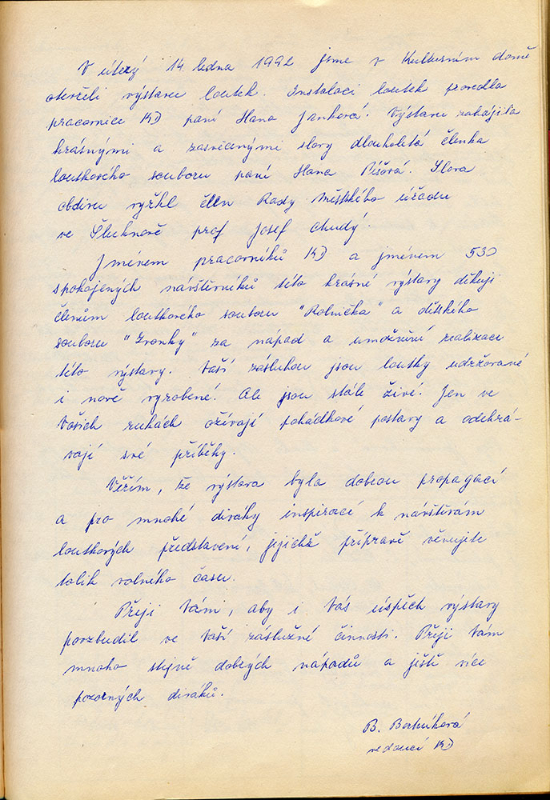 V úterý 14 ledna 1992 jsme v Kulturním domě
otevřeli výstavu loutek. Instalaci loutek provedla
pracovnice KD paní Hana Jankorá. Výstavu zahájila
krásnými a zasvěcenými slovy dlouholetá členka
loutkového souboru paní Hana Píšová. Slova
obdivu vyřkl člen Rady Městského úřadu
ve Šluknově prof Josef Chudý.
Jménem pracovníků KD a jménem 530
spokojených návštěvníků této krásné výstavy děkuji
členům loutkového souboru "Rolnička" a dětského
souboru "Zvonky" za nápad a umožnění realizace
této výstavy. Vaší zásluhou jsou loutky udržované
i nově vyrobené. Ale jsou stále živé. Jen ve
Vašich rukách ožívají pohádkové postavy a odehrá-
vají své příběhy.
Věřím, že výstava byla dobrou propagací
a pro mnohé diváky inspirace k návštěvám
loutkových představení, jejichž přípravě věnujete
tolik volného času.
Přeji Vám, aby i Vás úspěch výstavy
povzbudil ve Vaší záslužné činnosti. Přeji Vám
mnoho stejně dobrých nápadů a ještě více
pozorných diváků.
B.
vedoucí KD